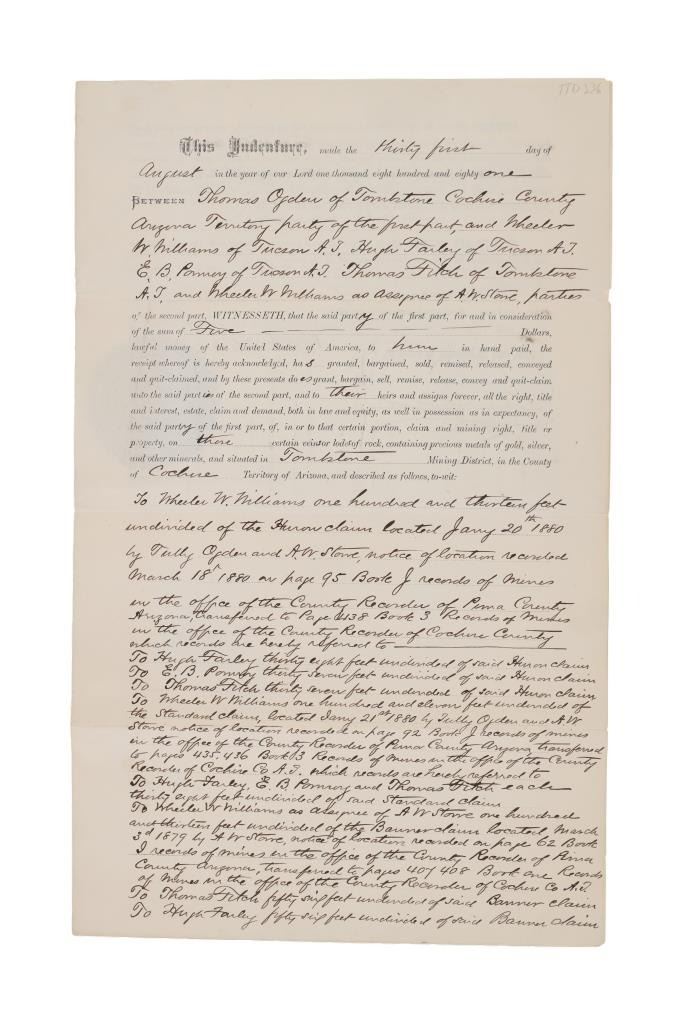 TTD 336
This Indenture, made the thirty first day of
August in the year of our Lord one thousand eight hundred and eighty one
BETWEEN Thomas Ogden of Tombstone Cochise County
Arizona Territory party of the first part, and Wheeler
W. Williams of Tucson A.T, Hugh Farley of Tucson A.T.
E. B. Pomroy of Tucson A.T. Thomas Fitch of Tombstone
A.T, and Wheeler W Williams as assignee of A.W. Stowe, parties
of the second part, WITNESSETH, that the said party of the first part, for and in consideration
of the sum of Five Dollars,
lawful money of the United States of America, to him in hand paid, the
receipt whereof is hereby acknowledged, has granted, bargained, sold, remised, released, conveyed
and quit-claimed, and by these presents does grant, bargain, sell, remise, release, convey and quit-claim
unto the said parties of the second part, and to their heirs and assigns forever, all the right, title
and interest, estate, claim and demand, both in law and equity, as well in possession as in expectancy, of
the said party of the first part, of, in or to that certain portion, claim and mining right, title or
property, on those certain vein or lodes of rock, containing precious metals of gold, silver,
and other minerals, and situated in Tombstone Mining District, in the County
of Cochise Territory of Arizona, and described as follows, to-wit:
To Wheeler W. Williams one hundred and thirteen feet
undivided of the Huron claim located Jany 20th 1880
by Tully Ogden and A.W. Stowe, notice of location recorded
March 18" 1880 on page 95 Book J records of Mines
in the office of the County Recorder of Pima County
Arizona, transferred to Page 438 Book 3 Records of Mines
in the office of the County Recorder of Cochise County
which records are hereby referred to
To Hugh Farley thirty eight feet undivided of said Huron claim
To E. B. Pomroy thirty seven feet undivided of said Huron claim
To Thomas Fitch thirty seven feet undivided of said Huron claim
To Wheeler W Williams one hundred and eleven feet undivided of
the Standard claim, located Jany 21st 1880 by Tully Ogden and A W
Stowe notice of location recorded on page 92 Book J records of mines
in the office of the County Recorder of Pima County Arizona transferred
to pages 435.436 Book 3 Records of Mines in the office of the County
Recorder of Cochise Co A.T. which records are hereby referred to
To Hugh Farley, E. B. Pomroy and Thomas Fitch each
thirty eight feet undivided of said Standard claim
To Wheeler W Williams as assignee of A W Stowe one hundred
and thirteen feet undivided of the Banner claim located March
3d 1879 by A W Stowe, notice of location recorded on page 62 Book
I records of mines in the office of the County Recorder of Pima
County Arizona, transferred to pages 407 408 Book one Records
of Mines in the office of the County Recorder of Cochise Co A.T.
To Thomas Fitch fifty six feet undivided of said Banner claim
To Hugh Farley fifty six feet undivided of said Banner claim